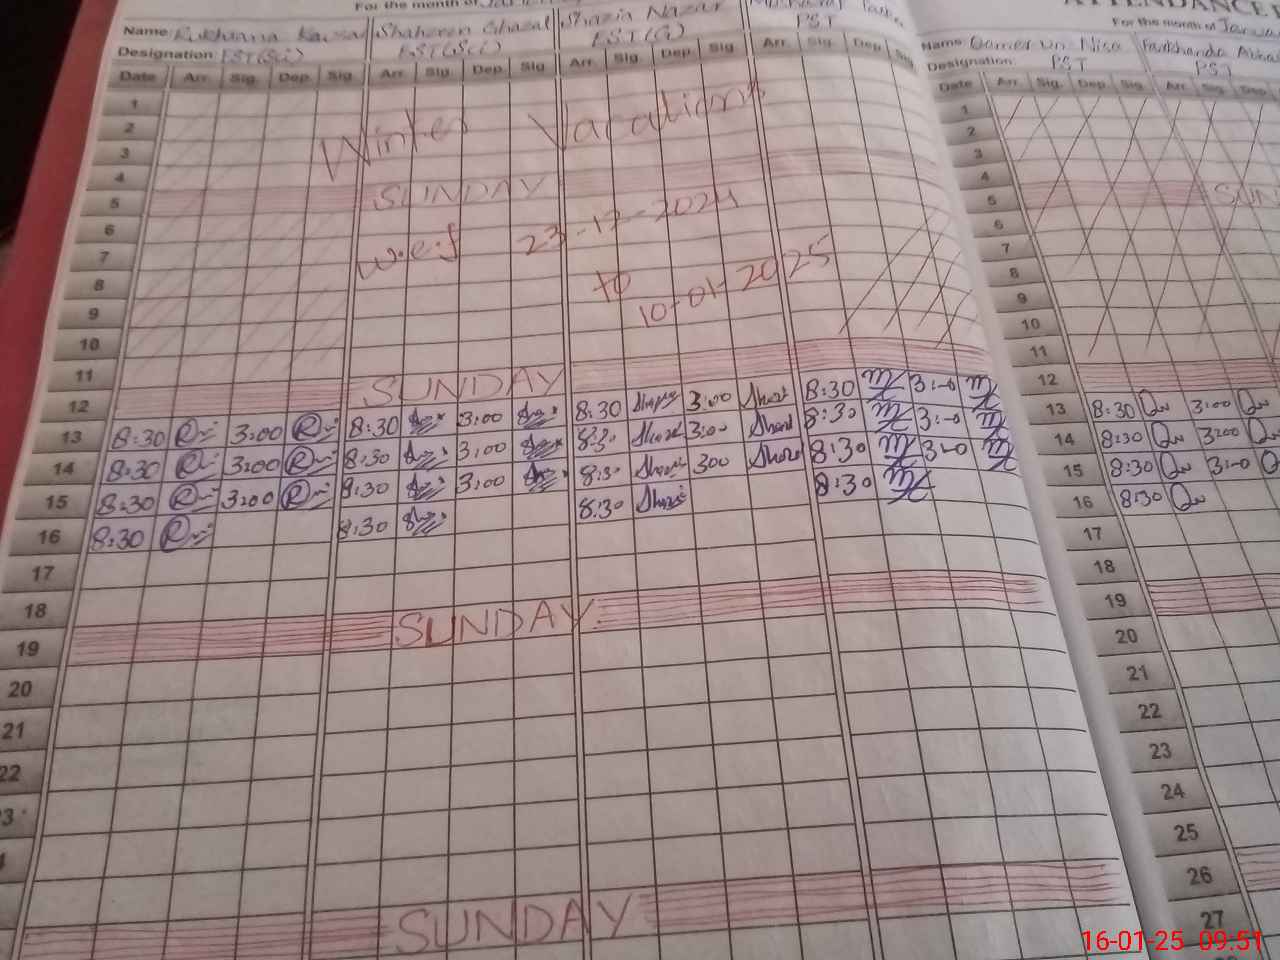 ATTENDANCE
For the month of Jan
For the month of Januar
Name: Rukhsana Kausar Shaheen Ghazal Shazia Nazar
Designation: EST(Sci) EST(Sci) EST(G) PST
Name: Qamer un Nisa Farkhanda
Designation: PST PST
Date Arr. Sig. Dep. Sig. Arr. Sig. Dep. Sig. Arr. Sig. Dep. Sig. Arr. Sig. Dep. Sig.
Date Arr. Sig. Dep. Sig. Arr. Sig. Dep.
1 1
2 Winter Vacations 2
3 3
4 4
5 SUNDAY 5 SUN
6 6
7 w.e.f 23-12-2024 7
8 to 8
9 10-01-2025 9
10 10
11 11
12 SUNDAY 12
13 8:30 3:00 8:30 3:00 8:30 3:00 8:30 3:00 13 8:30 3:00
14 8:30 3:00 8:30 3:00 8:30 3:00 8:30 3:00 14 8:30 3:00
15 8:30 3:00 8:30 3:00 8:30 300 8:30 3:00 15 8:30 3:00
16 8:30 8:30 8:30 8:30 16 8:30
17 17
18 18
19 SUNDAY 19
20 20
21 21
22 22
23
24
25
SUNDAY 26
27
16-01-25 09:51